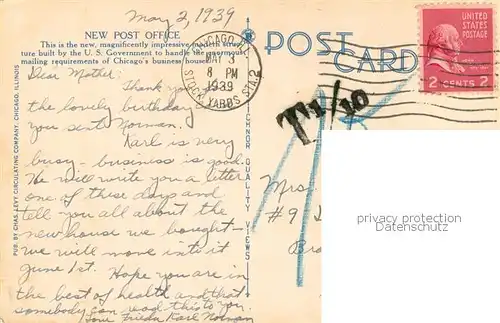 May 2, 1939
NEW POST OFFICE
This is the new, magnificently impressive modern struc-
ture built by the U. S. Government to handle the enormous
mailing requirements of Chicago's business houses.
POST CARD
CHICAGO, ILL.
MAY 3
8 PM
1939
STOCK YARDS STA. 2
UNITED STATES POSTAGE
2 CENTS 2
T 1/10
Dear Mother:
Thank you for
the lovely birthday
you sent Norman.
Karl is very
busy - business is good.
He will write you a letter
one of these days and
tell you all about the
new house we bought -
we will move into it
June 1st. Hope you are in
the best of health and that
somebody can read this to you.
Love Frieda Karl Norman
PUB. BY CHAS. LEVY CIRCULATING COMPANY, CHICAGO, ILLINOIS
QUALITY VIEWS
Mrs.
# 9
privacy protection
Datenschutz